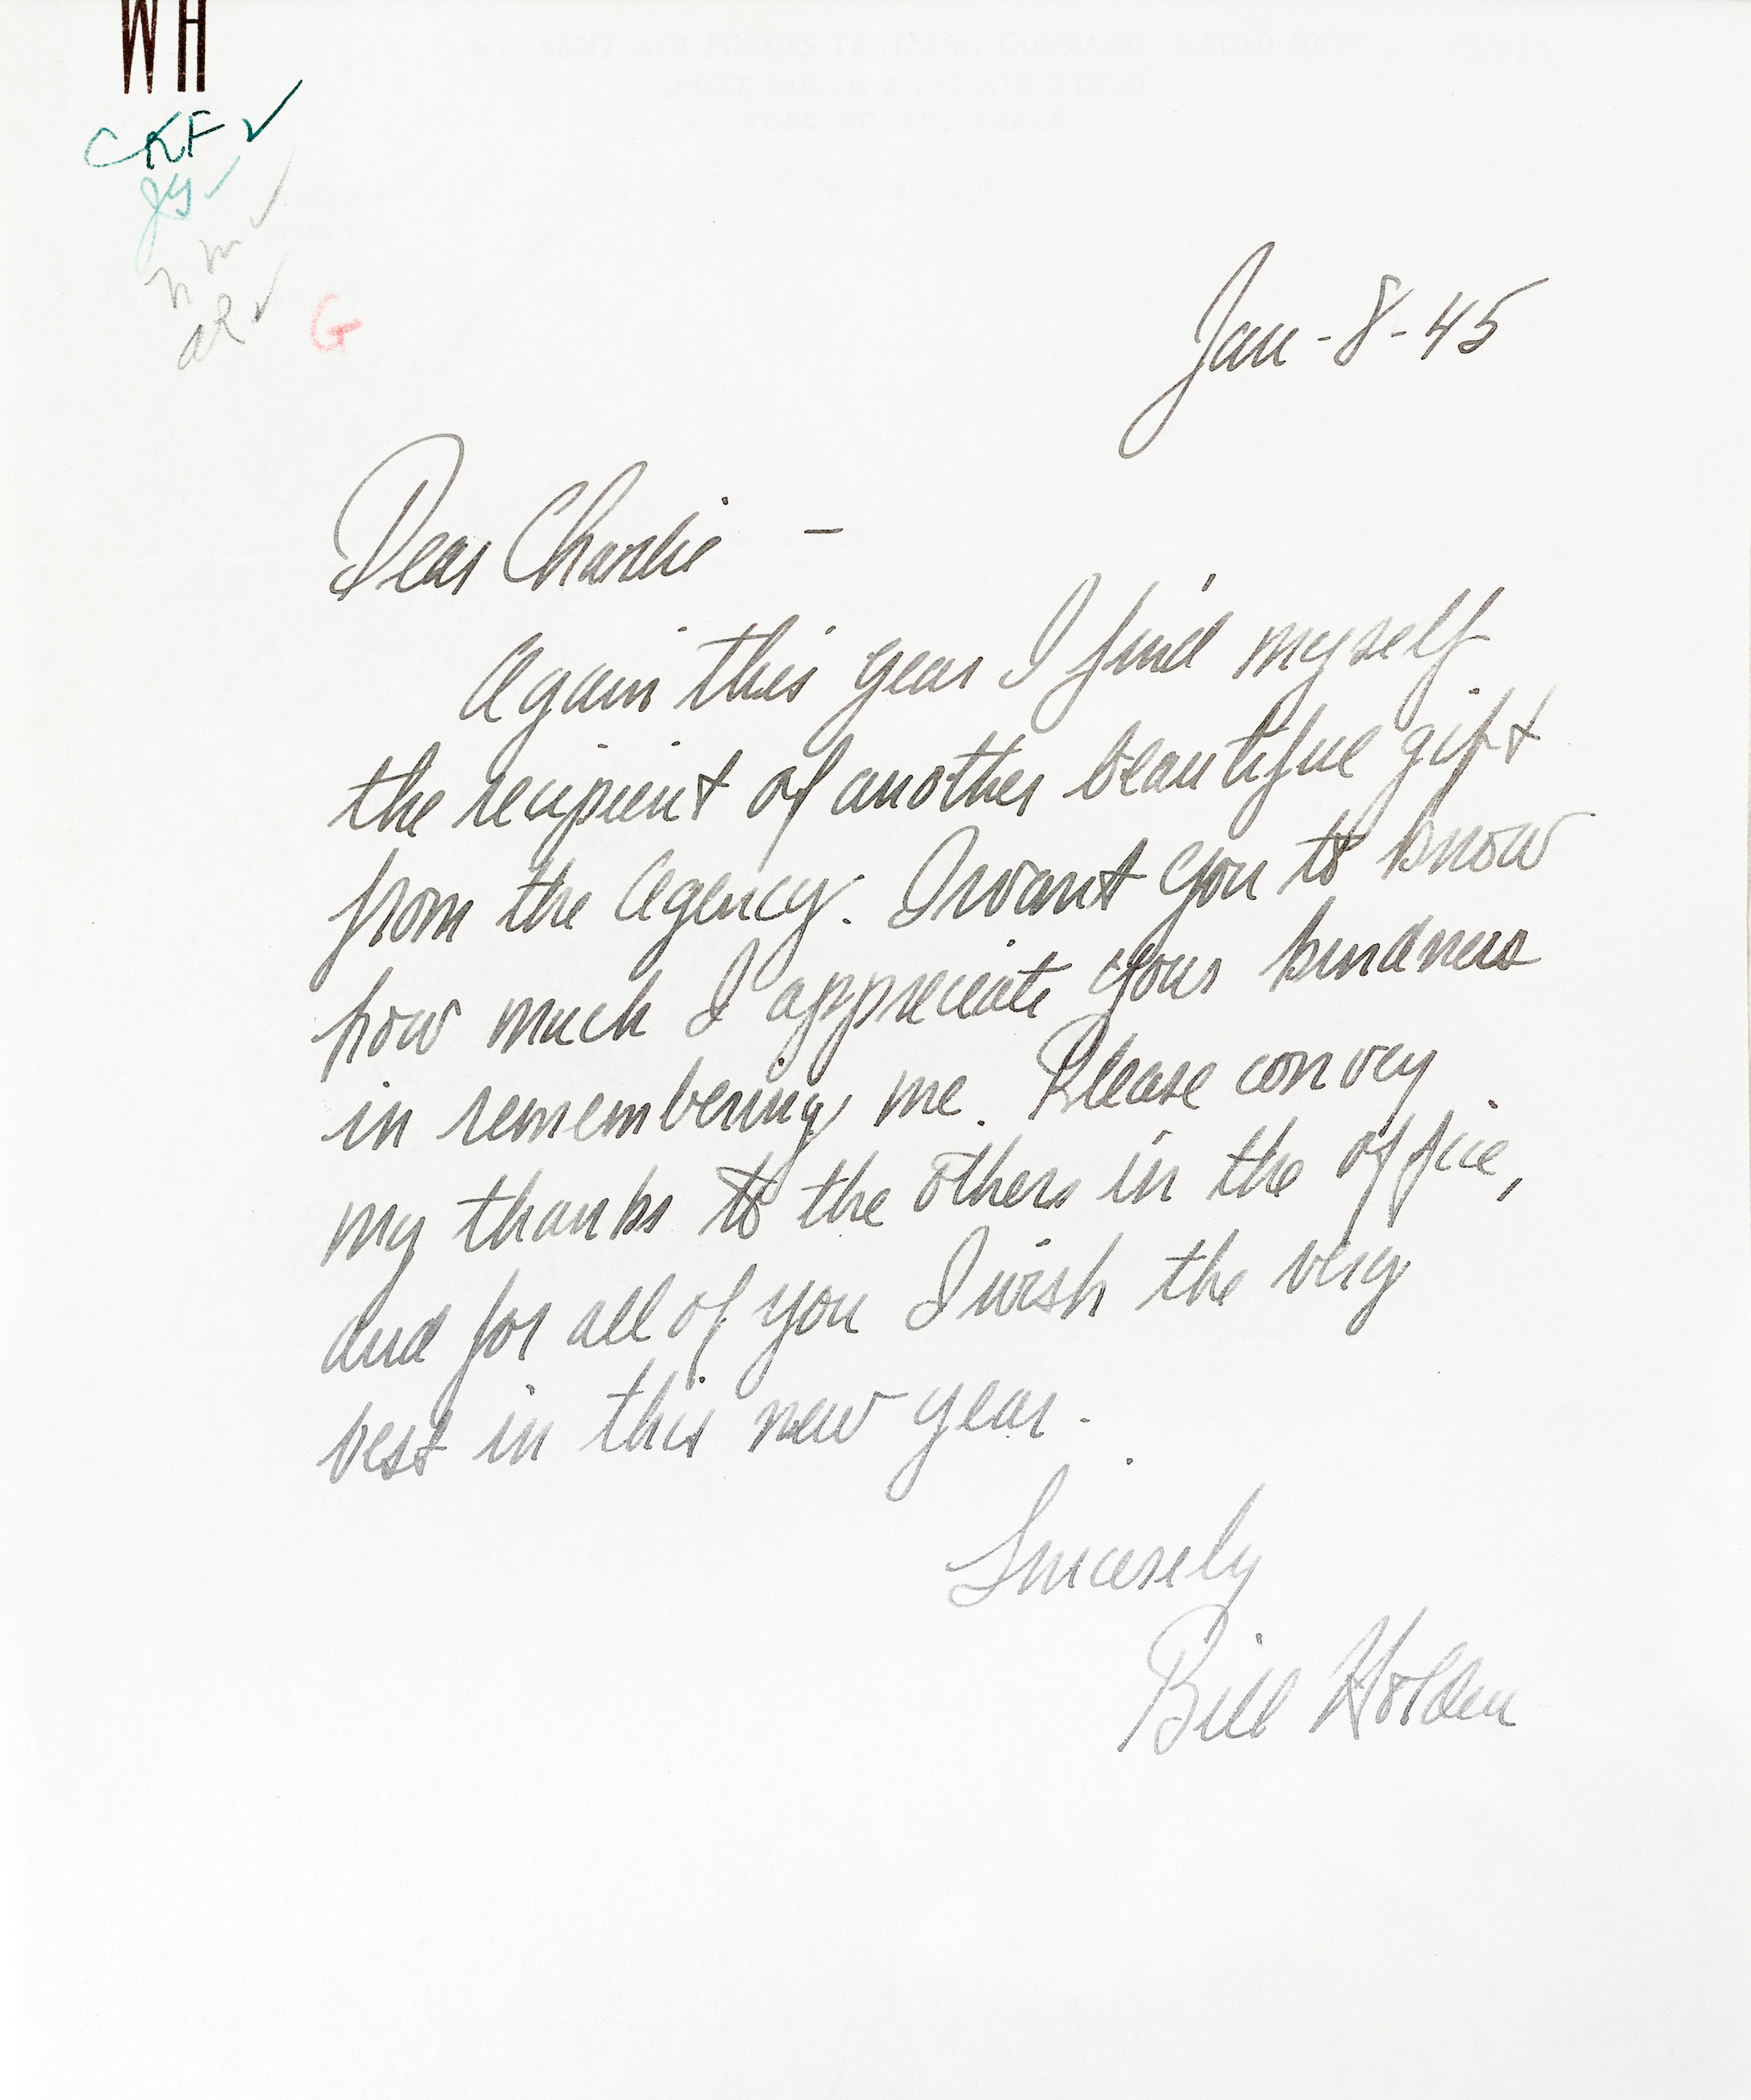 WH
CKF ✓
G
Jan - 8 - 45
Dear Charlie -
Again this year I find myself
the recipient of another beautiful gift
from the Agency. I want you to know
how much I appreciate your kindness
in remembering me. Please convey
my thanks to the others in the office,
and for all of you I wish the very
best in this new year.
Sincerely
Bill Holden